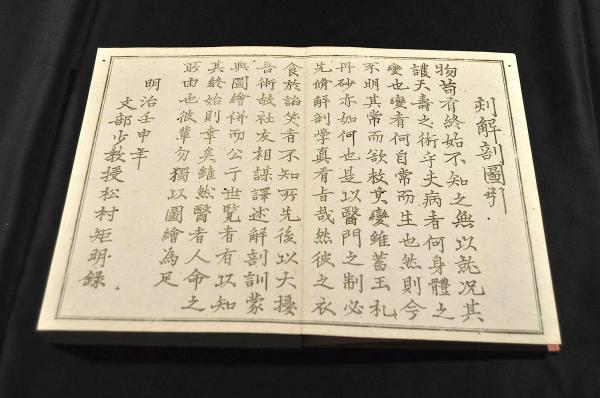 刺解剖圖引
物苟有終始不知之無以就況其
護夭壽之術乎夫病者何身體之
變也變者何自常而生也然則今
不明其常而欲救其變雖蓄玉札
丹砂亦如何也是以醫門之制必
先脩解剖學真有旨哉然彼之衣
食於諂笑者不知所先後以夭擾
吾術故社友相謀譯述解剖訓蒙
與圖繪併而公于世覧者有以知
其終始則幸矣雖然醫者人命之
所由也彼輩勿獨以圖繪為足
明治壬申年
文部少教授松村矩明錄